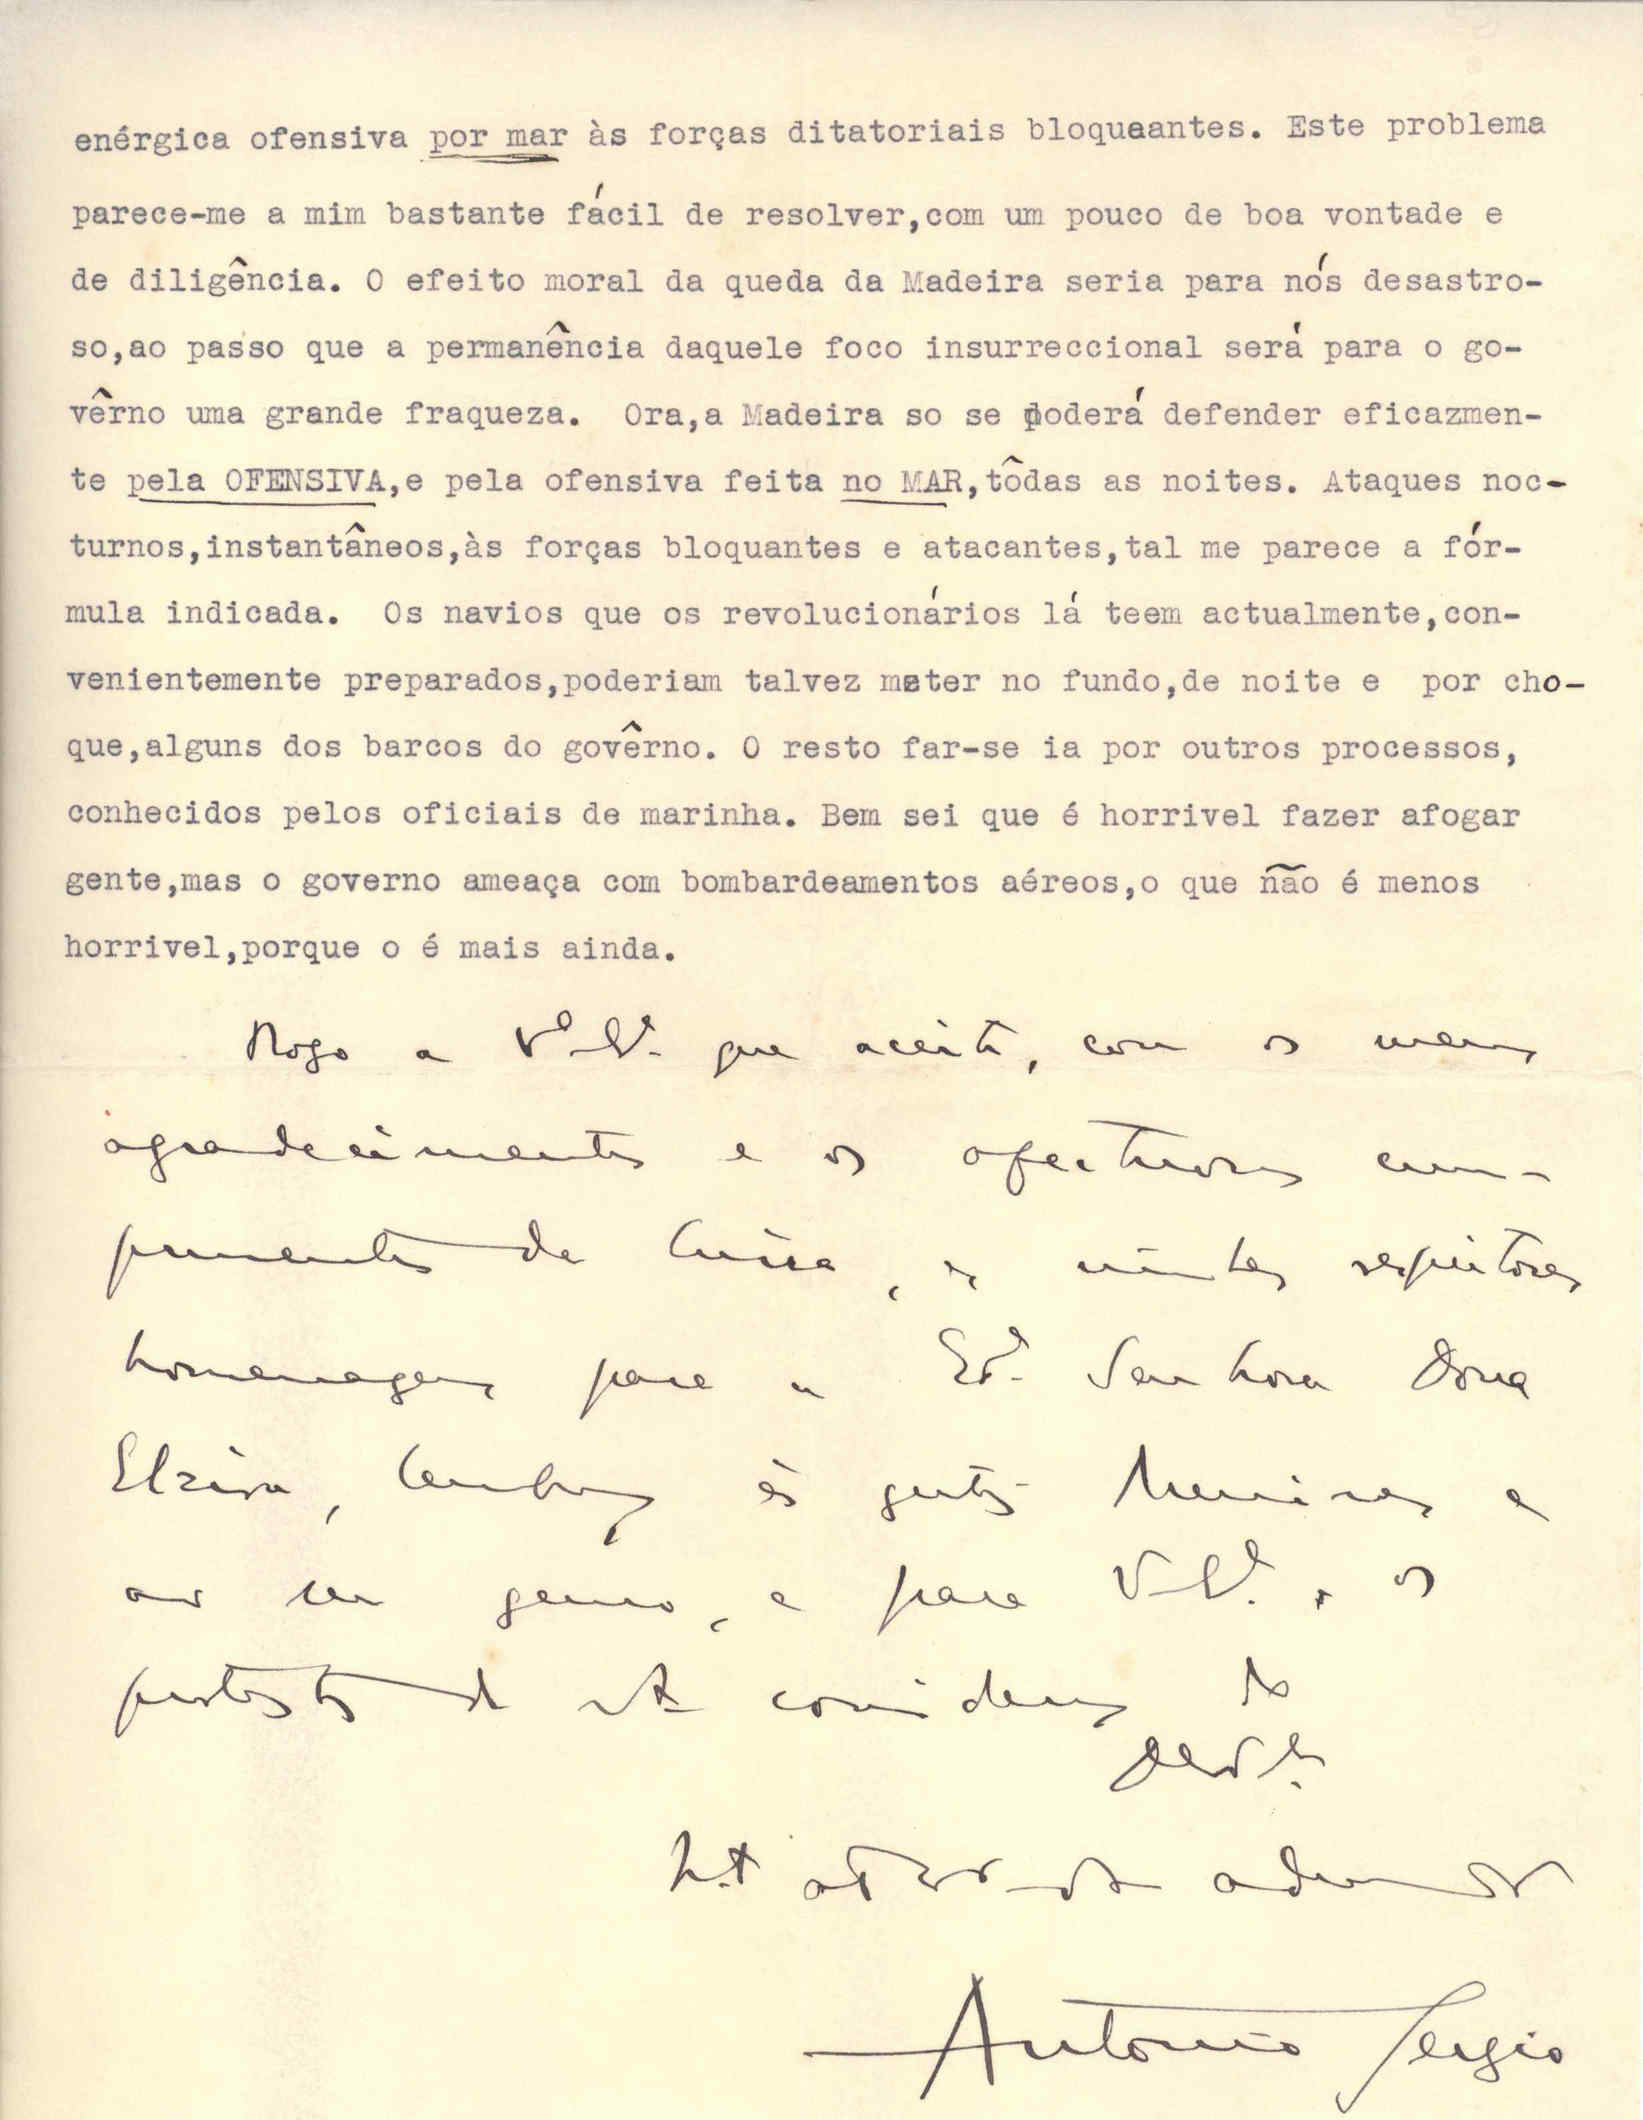 enérgica ofensiva por mar às forças ditatoriais bloqueantes. Este problema
parece-me a mim bastante fácil de resolver,com um pouco de boa vontade e
de diligência. O efeito moral da queda da Madeira seria para nós desastro-
so,ao passo que a permanência daquele foco insurreccional será para o go-
vêrno uma grande fraqueza. Ora,a Madeira so se poderá defender eficazmen-
te pela OFENSIVA,e pela ofensiva feita no MAR,tôdas as noites. Ataques noc-
turnos,instantâneos,às forças bloquantes e atacantes,tal me parece a fór-
mula indicada. Os navios que os revolucionários lá teem actualmente,con-
venientemente preparados,poderiam talvez meter no fundo,de noite e por cho-
que,alguns dos barcos do govêrno. O resto far-se ia por outros processos,
conhecidos pelos oficiais de marinha. Bem sei que é horrivel fazer afogar
gente,mas o governo ameaça com bombardeamentos aéreos,o que não é menos
horrivel,porque o é mais ainda.
Rogo a V. que aceite, com os meus
agradecimentos e os afectuosos cum-
primentos da Luísa, as minhas respeitosas
homenagens para a Exª Senhora Dona
Elzira, lembranças às gentis Meninas e
ao seu genro, e para V. Exª. os
protestos de alta consideração do
mtº admirador
António Sérgio